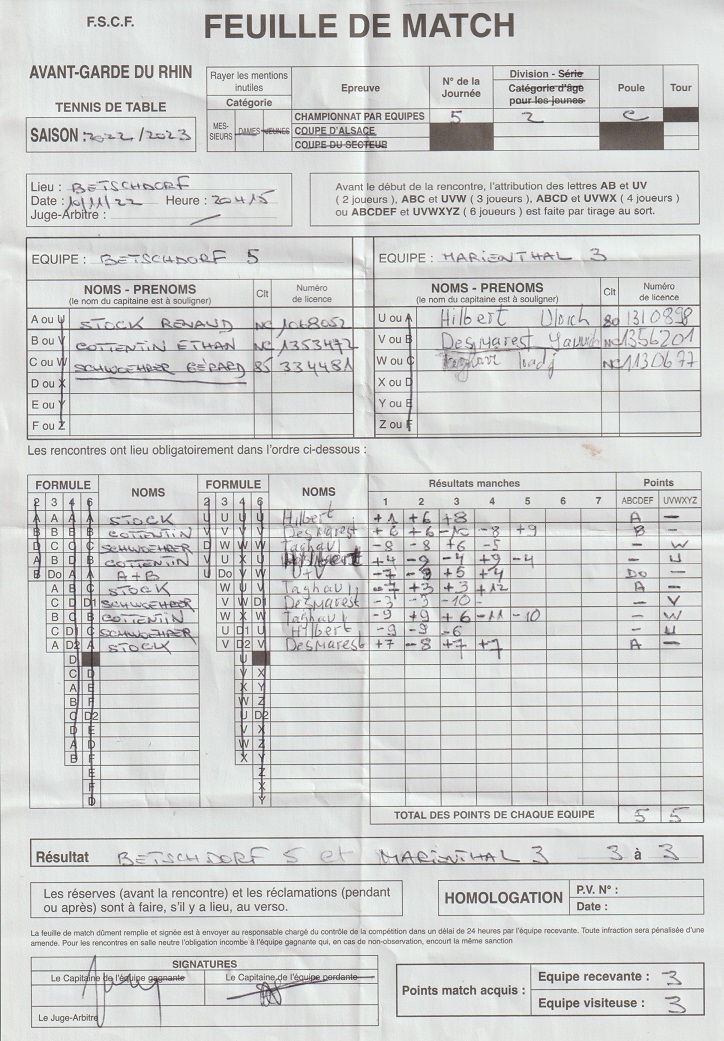 F.S.C.F.
FEUILLE DE MATCH
AVANT-GARDE DU RHIN
TENNIS DE TABLE
SAISON : 2022 / 2023
Rayer les mentions inutiles
Catégorie
MES-SIEURS DAMES JEUNES
Epreuve
N° de la Journée
Division - Série
Catégorie d'âge
pour les jeunes
Poule
Tour
CHAMPIONNAT PAR EQUIPES 5 2 C
COUPE D'ALSACE
COUPE DU SECTEUR
Lieu : BETSCHDORF
Date : 10/11/22 Heure : 20h15
Juge-Arbitre :
Avant le début de la rencontre, l'attribution des lettres AB et UV
( 2 joueurs ), ABC et UVW ( 3 joueurs ), ABCD et UVWX ( 4 joueurs )
ou ABCDEF et UVWXYZ ( 6 joueurs ) est faite par tirage au sort.
EQUIPE : BETSCHDORF 5
NOMS - PRENOMS
(le nom du capitaine est à souligner)
Clt
Numéro de licence
A ou U STOCK RENAUD NC 1068052
B ou V COTTENTIN ETHAN NC 1353472
C ou W SCHWOEHRER GÉRARD 85 334481
D ou X
E ou Y
F ou Z
EQUIPE : MARIENTHAL 3
NOMS - PRENOMS
(le nom du capitaine est à souligner)
Clt
Numéro de licence
U ou A Hilbert Ulrich 80 1310898
V ou B Desmarest NC 1356201
W ou C NC 1130677
X ou D
Y ou E
Z ou F
Les rencontres ont lieu obligatoirement dans l'ordre ci-dessous :
FORMULE NOMS FORMULE NOMS Résultats manches Points
2 3 4 6 2 3 4 6 1 2 3 4 5 6 7 ABCDEF UVWXYZ
A A A A STOCK U U U U Hilbert +1 +6 +8 A –
B B B B COTTENTIN V V V V Desmarest +6 +6 -8 +9 B –
D C C C SCHWOEHRER D W W W Taghavi -8 -8 +6 -5 – W
A B D B COTTENTIN V U X U Hilbert +4 -9 +9 -4 – U
B Do A A A+B U Do V V U+V -7 -9 +5 +4 Do –
A B C STOCK W U W Taghavi -7 +3 +3 +12 A –
C D D1 SCHWOEHRER V W D1 Desmarest -3 -3 -10 – V
B C B COTTENTIN W X W Taghavi -9 +9 +6 -11 -10 – W
C D1 C SCHWOEHRER U D1 U Hilbert -9 -9 -6 – U
A D2 A STOCK V D2 V Desmarest +7 -8 +7 +7 A –
D U
C D V X
A E X Y
B F W Z
C D2 U D2
D E V Y
A D W Z
B F X W
E Z
F X
D Y
TOTAL DES POINTS DE CHAQUE EQUIPE 5 5
Résultat BETSCHDORF 5 et MARIENTHAL 3 3 à 3
Les réserves (avant la rencontre) et les réclamations (pendant
ou après) sont à faire, s'il y a lieu, au verso.
HOMOLOGATION
P.V. N° :
Date :
La feuille de match dûment remplie et signée est à envoyer au responsable chargé du contrôle de la compétition dans un délai de 24 heures par l'équipe recevante. Toute infraction sera pénalisée d'une
amende. Pour les rencontres en salle neutre l'obligation incombe à l'équipe gagnante qui, en cas de non-observation, encourt la même sanction
SIGNATURES
Le Capitaine de l'équipe gagnante
Le Capitaine de l'équipe perdante
Le Juge-Arbitre
Points match acquis :
Equipe recevante : 3
Equipe visiteuse : 3